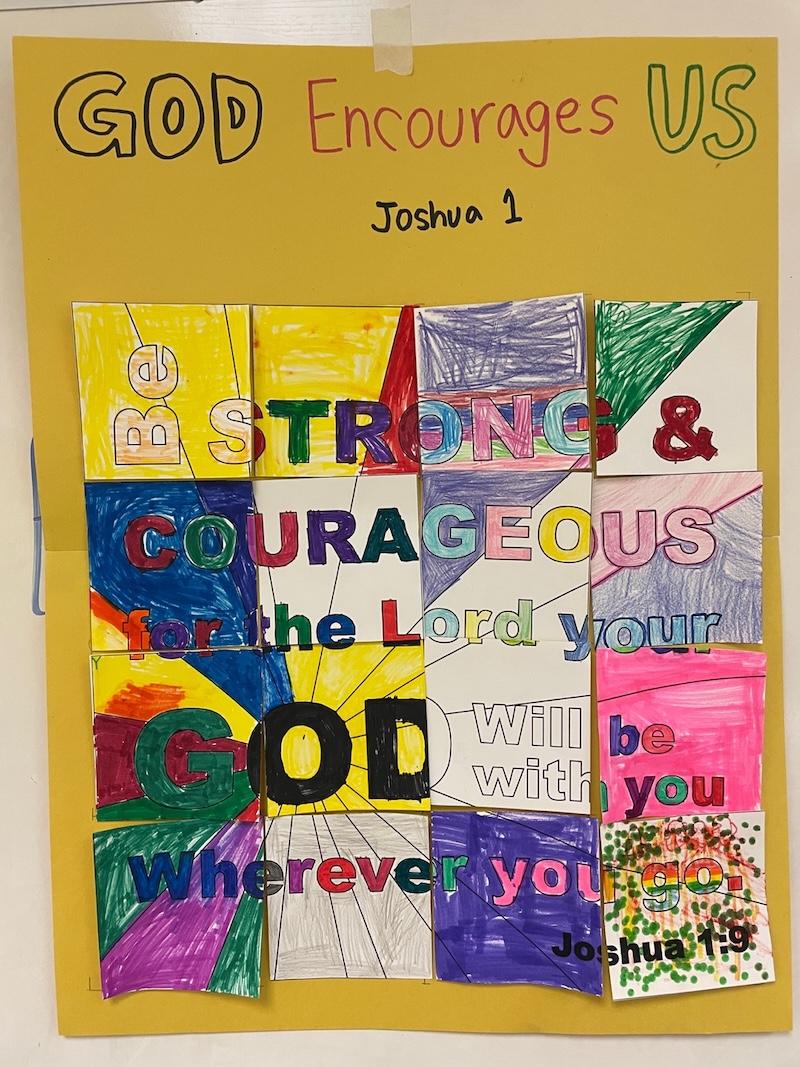 GOD Encourages US
Joshua 1
Be STRONG &
COURAGEOUS
for the Lord your
GOD Will be
with you
Wherever you go.
Joshua 1:9